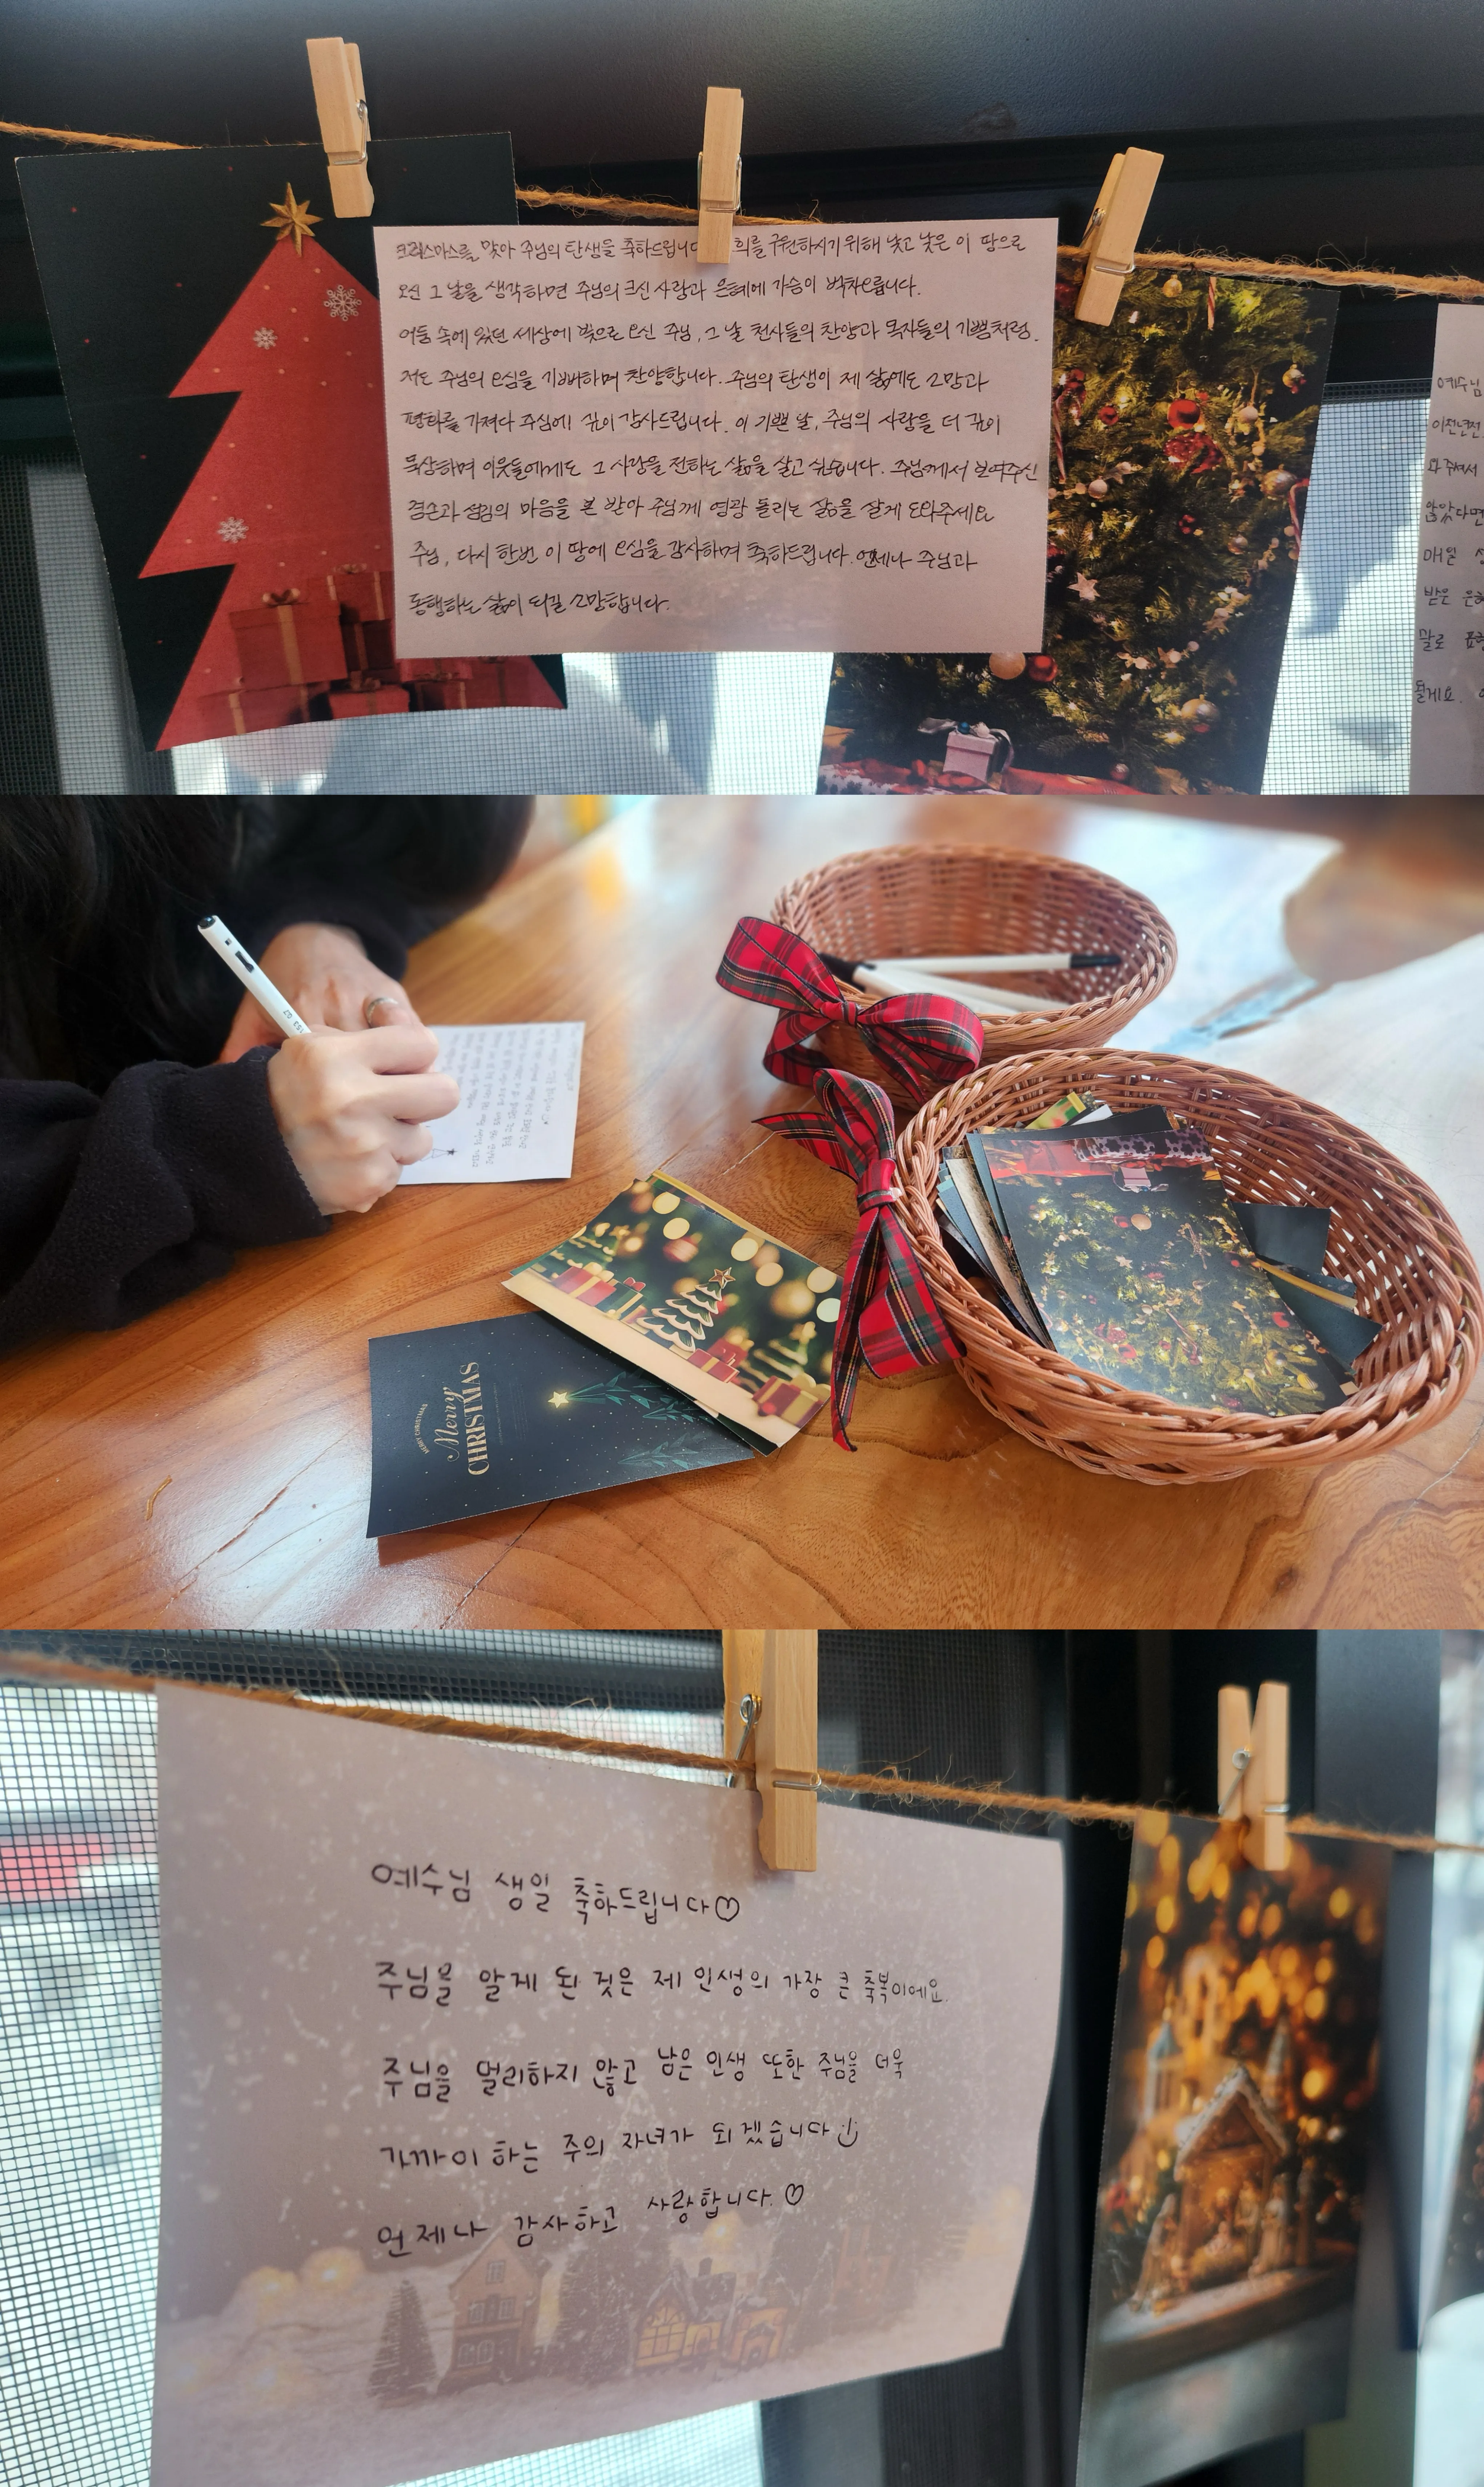 크리스마스를 맞아 주님의 탄생을 축하드립니다 희를 구원하시기 위해 낮고 낮은 이 땅으로
오신 그 날을 생각하면 주님의 크신 사랑과 은혜에 가슴이 벅차오릅니다.
어둠 속에 있던 세상에 빛으로 오신 주님, 그 날 천사들의 찬양과 목자들의 기쁨처럼.
저도 주님의 오심을 기뻐하며 찬양합니다. 주님의 탄생이 제 삶에도 소망과
평화를 가져다 주심에 깊이 감사드립니다. 이 기쁜 날, 주님의 사랑을 더 깊이
묵상하며 이웃들에게도 그 사랑을 전하는 삶을 살고 싶습니다. 주님께서 보여주신
겸손과 섬김의 마음을 본 받아 주님께 영광 돌리는 삶을 살게 도와주세요
주님, 다시 한번 이 땅에 오심을 감사하며 축하드립니다. 언제나 주님과
동행하는 삶이 되길 소망합니다.
예수님
이천년전
와주셔서
않았다면
매일
받은 은혜
말로 표현
될게요.
153 0.7
MERRY CHRISTMAS
Merry
CHRISTMAS
예수님 생일 축하드립니다♡
주님을 알게 된 것은 제 인생의 가장 큰 축복이에요.
주님을 멀리하지 않고 남은 인생 또한 주님을 더욱
가까이 하는 주의 자녀가 되겠습니다
언제나 감사하고 사랑합니다. ♡